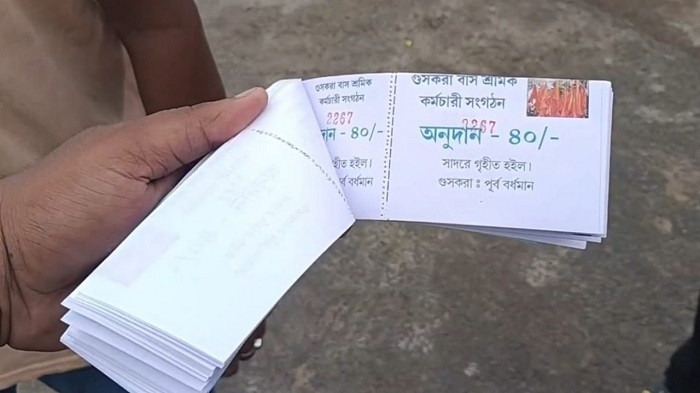 গুসকরা বাস শ্রমিক
কর্মচারী সংগঠন
2267
দান - ৪০/-
গৃহীত হইল।
র্ব বর্ধমান
গুসকরা বাস শ্রমিক
কর্মচারী সংগঠন
2267
অনুদান - ৪০/-
সাদরে গৃহীত হইল।
গুসকরা : পূর্ব বর্ধমান